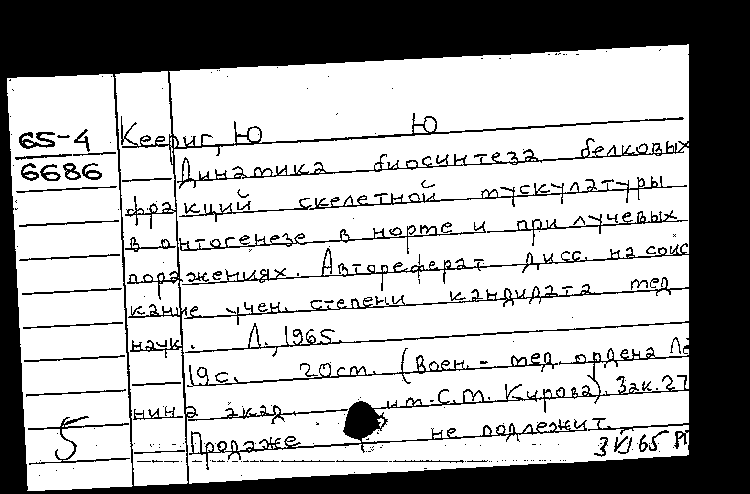 65-4 Кеериг, Ю Ю
6686 Динамика биосинтеза белковых
фракций скелетной мускулатуры
в онтогенезе в норме и при лучевых
поражениях. Автореферат дисс. на соис
кание учен. степени кандидата мед
наук. Л., 1965.
19с. 20см. (Воен.-мед. ордена Ле
нина акад. им. С.М. Кирова). Зак. 27
5 Продаже не подлежит.
3 VI 65